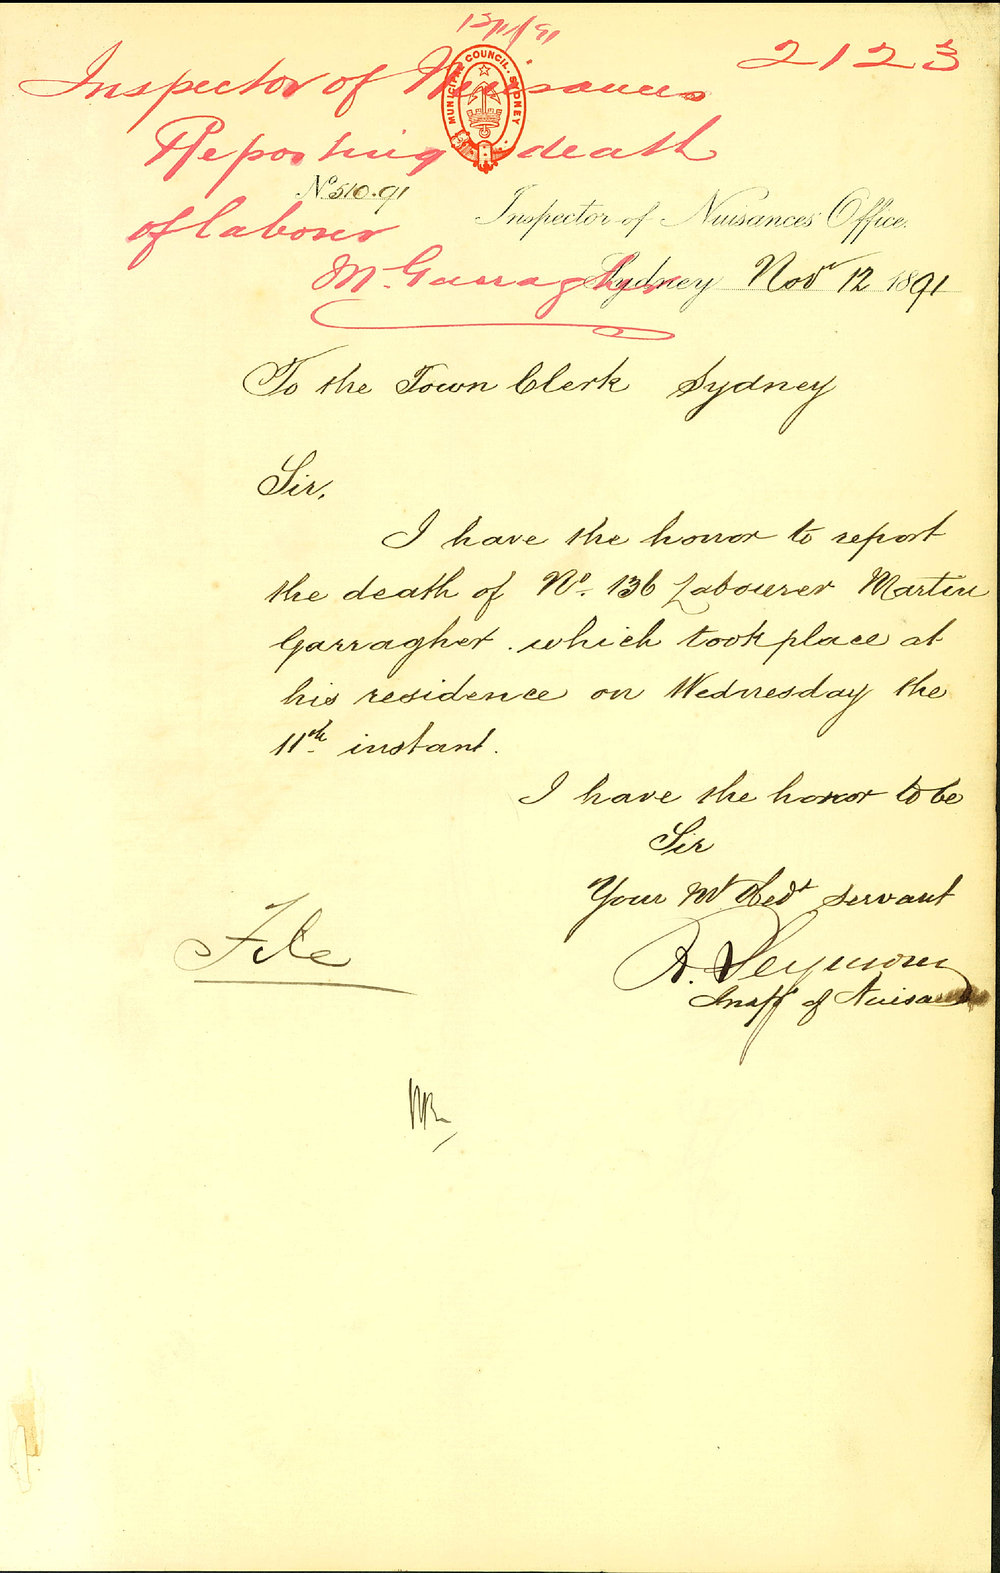 13/11/91
2123
Inspector of Nuisances
Reporting death
of labourer
M. Garragher
MUNICIPAL COUNCIL. SYDNEY
No. 510.91
Inspector of Nuisances Office.
Sydney Novr 12 1891
To the Town Clerk Sydney
Sir,
I have the honor to report
the death of No. 136 Labourer Martin
Garragher. which took place at
his residence on Wednesday the
11th instant.
I have the honor to be
Sir
Your Mt Obedt servant
R. Seymour
Inspr of Nuisances
File